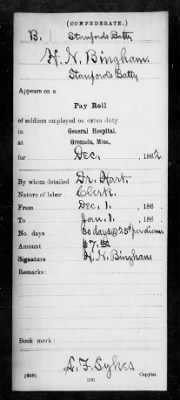 (CONFEDERATE.)
B. Stanford's Batty
H. N. Bingham.
Stanford's Batty
Appears on a
Pay Roll
of soldiers employed on extra duty
in General Hospital,
at Grenada, Miss.,
for Dec., 1862
By whom detailed Dr. Hart.
Nature of labor Clerk.
From Dec. 1. 186 .
To Jan. 1. 186 .
No. days 30 days @ 25¢ per diem.
Amount $7.50
Signature H. N. Bingham
Remarks:
Book mark:
L. F. Sykes
Copyist.